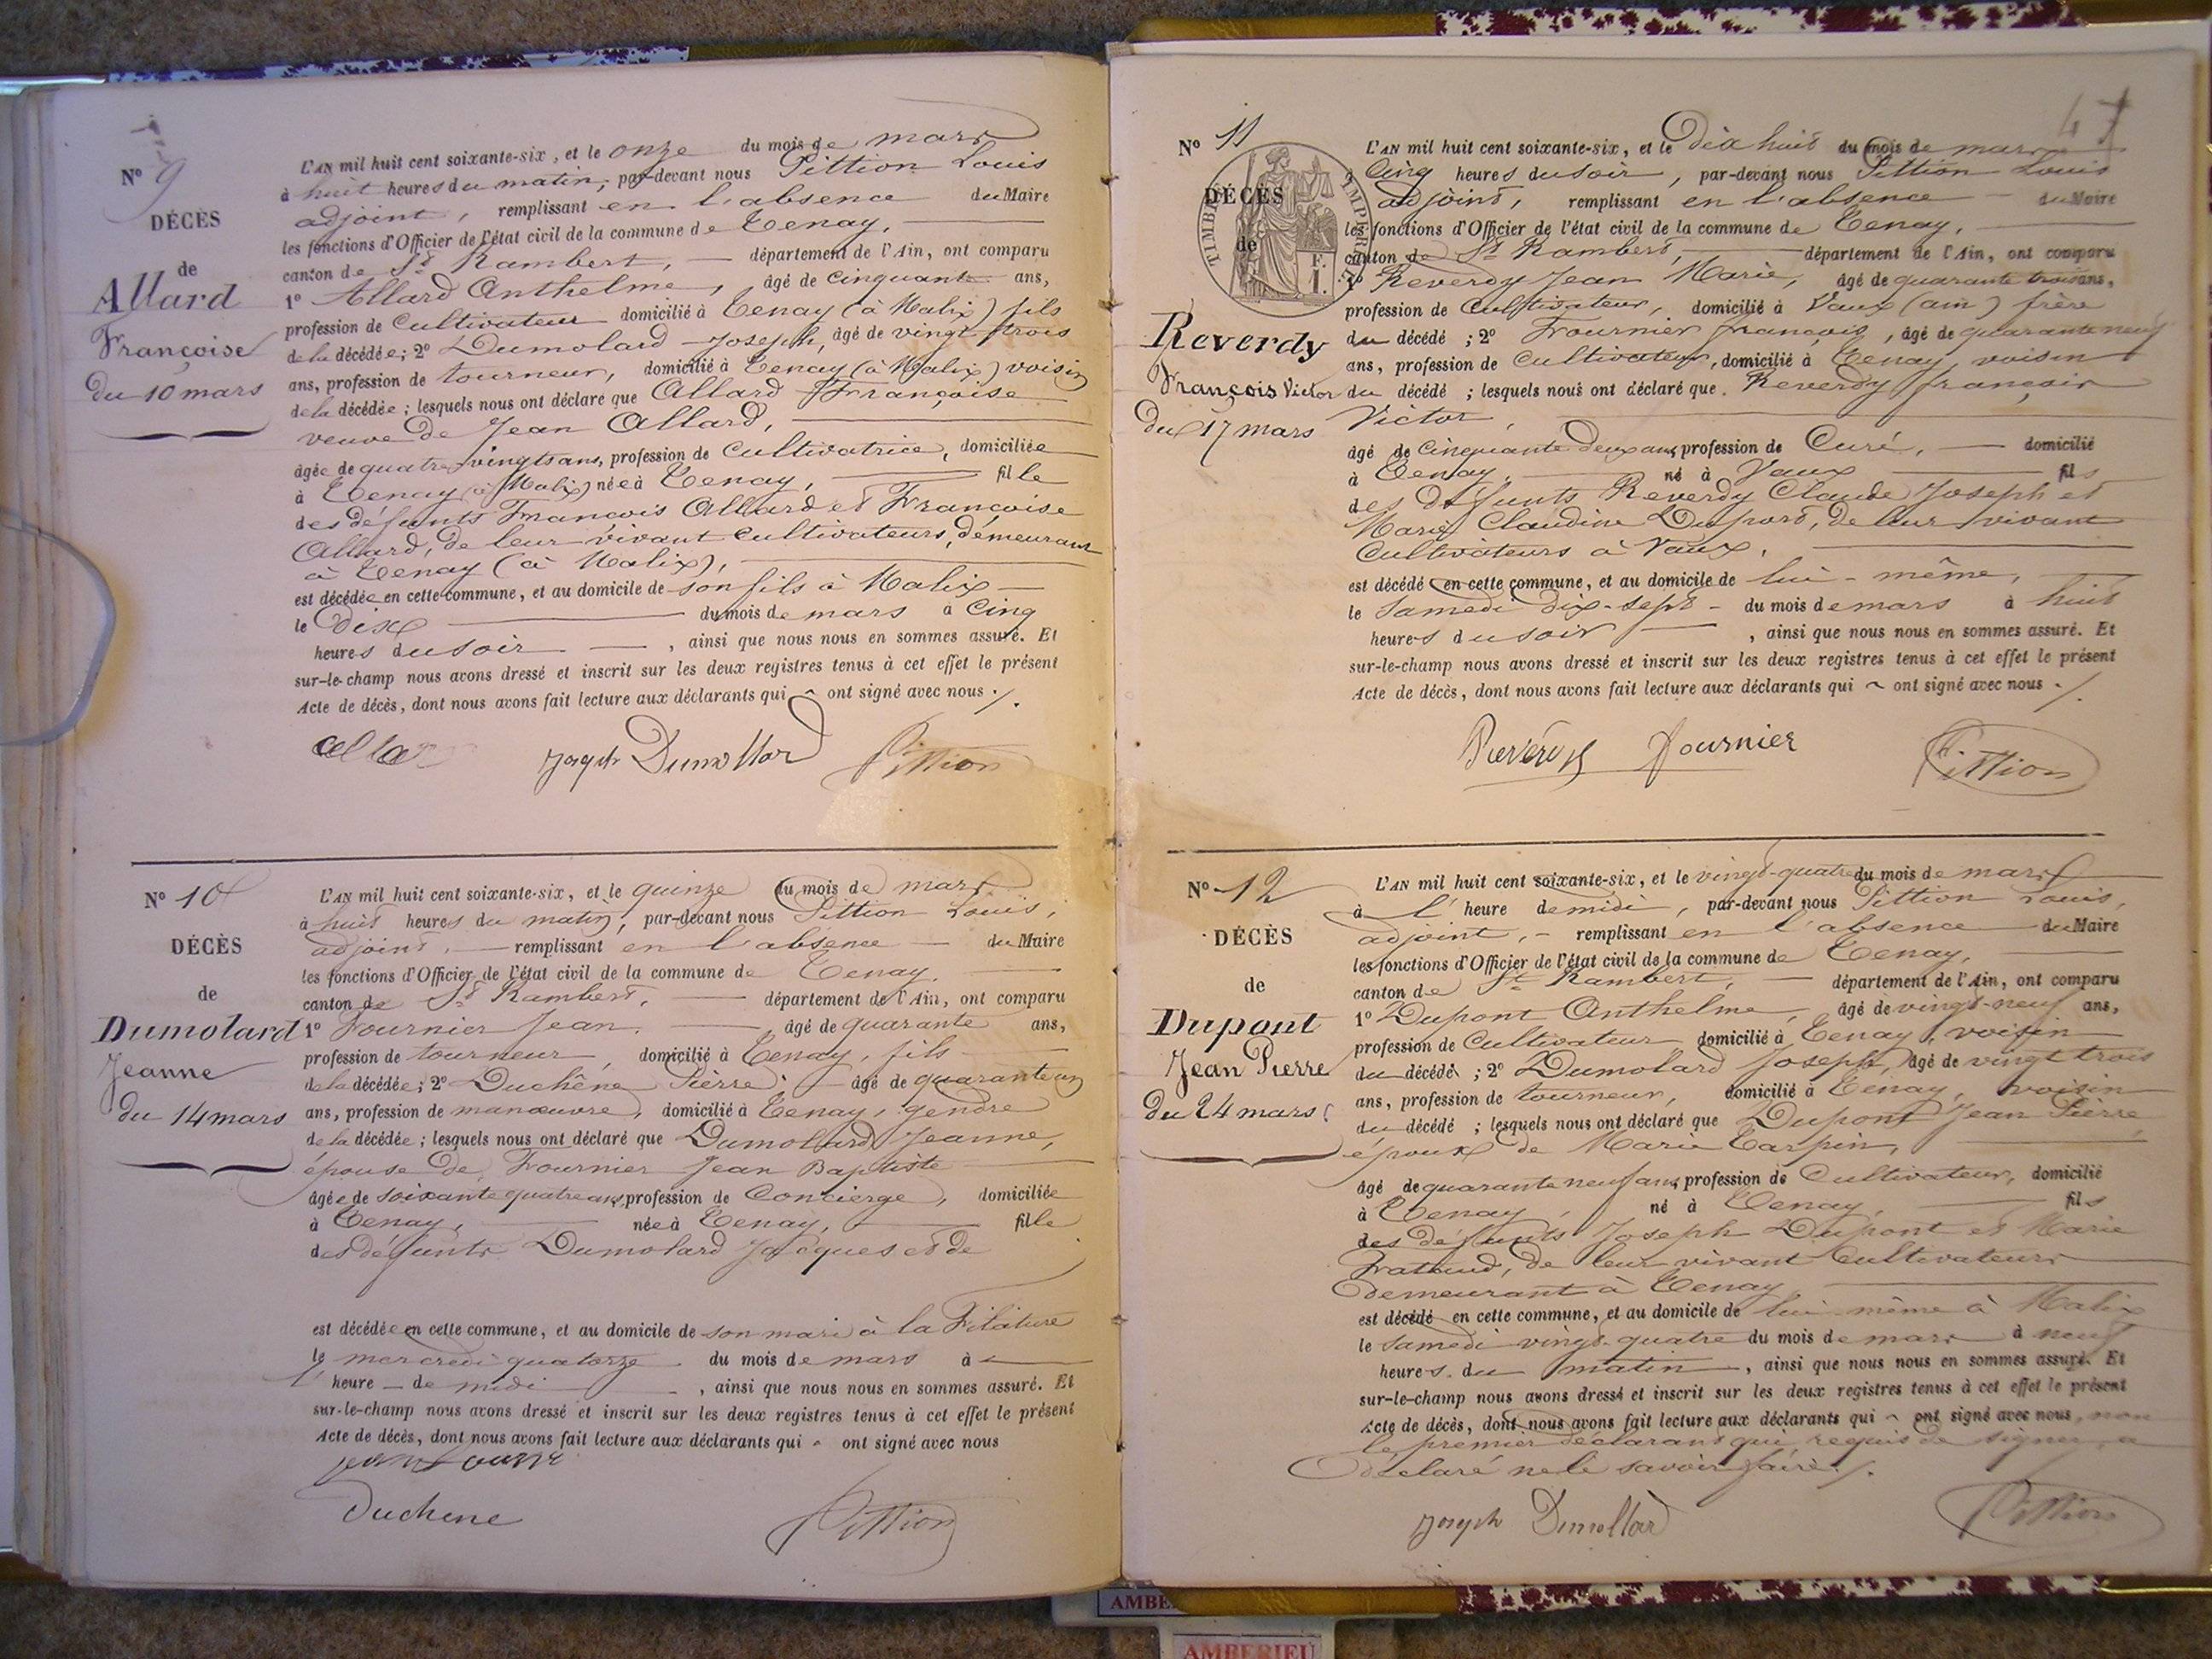 N° 9
DÉCÈS
de
Allard
Françoise
du 10 mars
L'AN mil huit cent soixante-six, et le onze du mois de mars
à huit heures du matin, par-devant nous Pittion Louis
adjoint, remplissant en l'absence du Maire
les fonctions d'Officier de l'état civil de la commune de Tenay,
canton de St Rambert, département de l'Ain, ont comparu
1° Allard Anthelme, âgé de cinquante ans,
profession de Cultivateur domicilié à Tenay (à Malix) fils
de la décédée; 2° Dumolard Joseph, âgé de vingt trois
ans, profession de tourneur, domicilié à Tenay (à Malix) voisin
de la décédée; lesquels nous ont déclaré que Allard Françoise
veuve de Jean Allard,
âgée de quatre vingts ans, profession de Cultivatrice, domiciliée
à Tenay (à Malix) née à Tenay, fille
des défunts François Allard et Françoise
Allard, de leur vivant Cultivateurs, demeurant
à Tenay (à Malix),
est décédée en cette commune, et au domicile de son fils à Malix
le dix du mois de mars à cinq
heures du soir, ainsi que nous nous en sommes assuré. Et
sur-le-champ nous avons dressé et inscrit sur les deux registres tenus à cet effet le présent
Acte de décès, dont nous avons fait lecture aux déclarants qui ont signé avec nous ./.
Joseph Dumollard Pittion
N° 10
DÉCÈS
de
Dumolard
Jeanne
du 14 mars
L'AN mil huit cent soixante-six, et le quinze du mois de mars
à huit heures du matin, par-devant nous Pittion Louis,
adjoint, remplissant en l'absence du Maire
les fonctions d'Officier de l'état civil de la commune de Tenay,
canton de St Rambert, département de l'Ain, ont comparu
1° Fournier Jean, âgé de quarante ans,
profession de tourneur, domicilié à Tenay, fils
de la décédée; 2° Duchêne Pierre, âgé de quarante un
ans, profession de manœuvre, domicilié à Tenay, gendre
de la décédée; lesquels nous ont déclaré que Dumolard Jeanne,
épouse de Fournier Jean Baptiste
âgée de soixante quatre ans, profession de Concierge, domiciliée
à Tenay, née à Tenay, fille
des défunts Dumolard Jacques et de
est décédée en cette commune, et au domicile de son mari à la Filature
le mercredi quatorze du mois de mars à
l'heure de midi, ainsi que nous nous en sommes assuré. Et
sur-le-champ nous avons dressé et inscrit sur les deux registres tenus à cet effet le présent
Acte de décès, dont nous avons fait lecture aux déclarants qui ont signé avec nous
Duchene Pittion
47
N° 11
DÉCÈS
de
TIMBRE IMPERIAL
1 F.
Reverdy
François Victor
du 17 mars
L'AN mil huit cent soixante-six, et le dix huit du mois de mars
à Cinq heures du soir, par-devant nous Pittion Louis
adjoint, remplissant en l'absence du Maire
les fonctions d'Officier de l'état civil de la commune de Tenay,
canton de St Rambert, département de l'Ain, ont comparu
1° Reverdy Jean Marie, âgé de quarante trois ans,
profession de Cultivateur, domicilié à Vaux (ain) frère
du décédé; 2° Fournier françois, âgé de quarante neuf
ans, profession de Cultivateur, domicilié à Tenay, voisin
du décédé; lesquels nous ont déclaré que Reverdy françois
Victor,
âgé de cinquante deux ans, profession de Curé, domicilié
à Tenay, né à Vaux fils
des défunts Reverdy Claude Joseph et
Marie Claudine Dupont, de leur vivant
Cultivateurs à Vaux,
est décédé en cette commune, et au domicile de lui-même,
le samedi dix-sept du mois de mars à huit
heures du soir, ainsi que nous nous en sommes assuré. Et
sur-le-champ nous avons dressé et inscrit sur les deux registres tenus à cet effet le présent
Acte de décès, dont nous avons fait lecture aux déclarants qui ont signé avec nous ./.
Reverdy Fournier Pittion
N° 12
DÉCÈS
de
Dupont
Jean Pierre
du 24 mars
L'AN mil huit cent soixante-six, et le vingt-quatre du mois de mars
à l'heure de midi, par-devant nous Pittion Louis,
adjoint, remplissant en l'absence du Maire
les fonctions d'Officier de l'état civil de la commune de Tenay,
canton de St Rambert, département de l'Ain, ont comparu
1° Dupont Anthelme, âgé de vingt-neuf ans,
profession de Cultivateur domicilié à Tenay, voisin
du décédé; 2° Dumolard Joseph, âgé de vingt trois
ans, profession de tourneur, domicilié à Tenay, voisin
du décédé; lesquels nous ont déclaré que Dupont Jean Pierre
époux de Marie Carpin,
âgé de quarante neuf ans, profession de Cultivateur, domicilié
à Tenay, né à Tenay, fils
des défunts Joseph Dupont et Marie
de leur vivant Cultivateurs
demeurant à Tenay
est décédé en cette commune, et au domicile de lui-même à Malix
le samedi vingt-quatre du mois de mars à neuf
heures du matin, ainsi que nous nous en sommes assuré. Et
sur-le-champ nous avons dressé et inscrit sur les deux registres tenus à cet effet le présent
Acte de décès, dont nous avons fait lecture aux déclarants qui ont signé avec nous, non
le premier déclarant qui, requis de signer, a
déclaré ne le savoir faire ./.
Joseph Dumollard Pittion
AMBERIEU